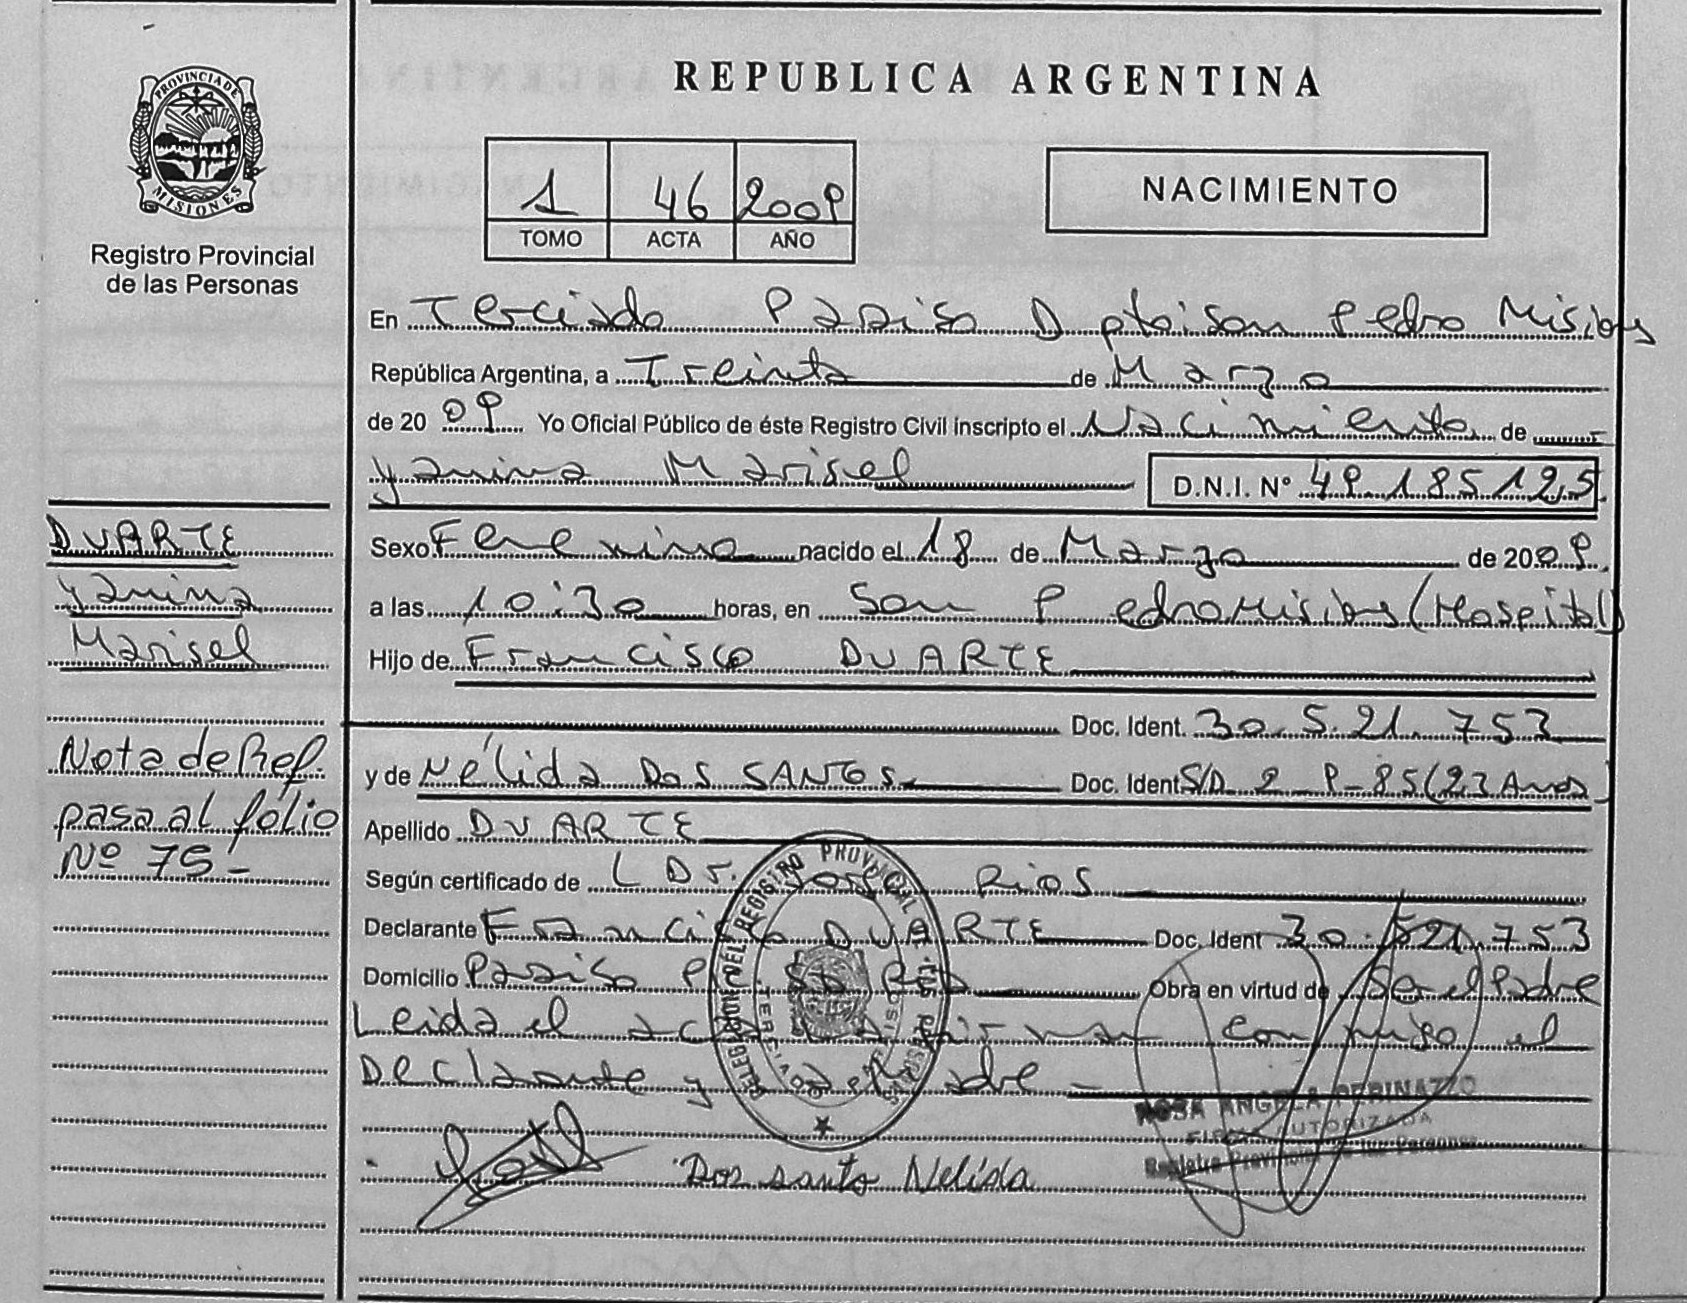 PROVINCIA DE
MISIONES
Registro Provincial
de las Personas
REPUBLICA ARGENTINA
1 46 2009
TOMO ACTA AÑO
NACIMIENTO
En Terciado Paraiso Dpto: San Pedro Misiones
República Argentina, a Treinta de Marzo
de 20 09 Yo Oficial Público de éste Registro Civil inscripto el Nacimiento de
Yanina Marisel D.N.I. Nº 49.185125
Sexo Femenino nacido el 18 de Marzo de 2009
a las 10:30 horas, en San Pedro Misiones (Hospital)
Hijo de Francisco DUARTE
Doc. Ident. 30.521.753
y de Nélida DOS SANTOS Doc. Ident S/D 2-9-85 (23 Años)
Apellido DUARTE
Según certificado de L Dr. Jorge Rios
Declarante Francisco DUARTE Doc. Ident 30.521.753
Domicilio Paraiso Obra en virtud de Ser el Padre
Leida el acta firman conmigo el
Declarante y la Madre -
DUARTE
Yanina
Marisel
Nota de Ref.
pasa al fólio
Nº 75-
DELEGACION DEL REGISTRO PROVINCIAL DE LAS PERSONAS
TERCIADO PARAISO
Dos santo Nelida
ROSA ANGELA PERINAZZO
FIRMA AUTORIZADA
Registro Provincial de las Personas